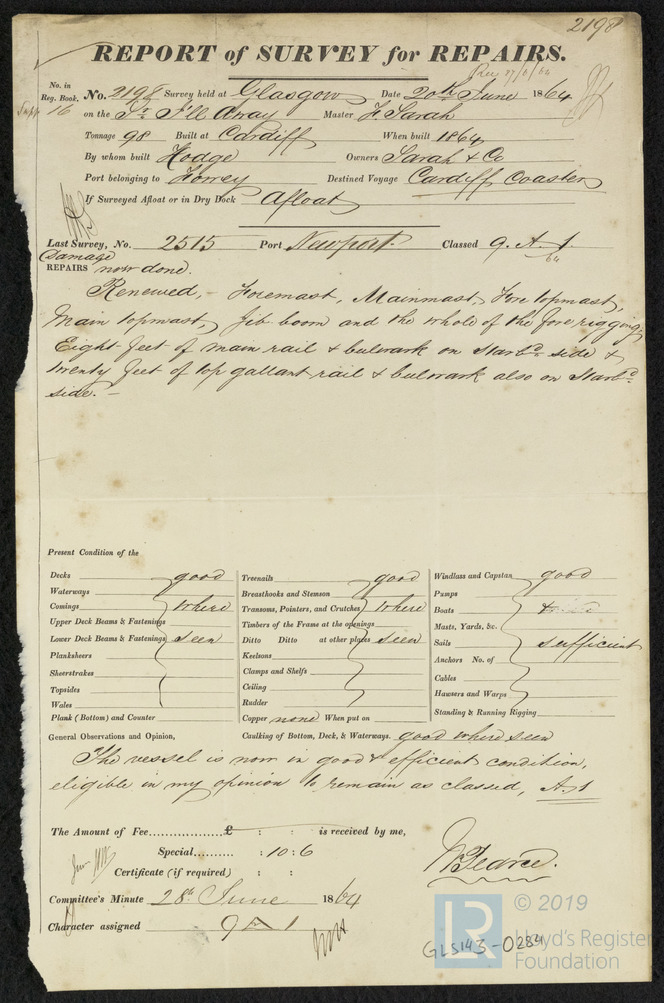 2198
REPORT of SURVEY for REPAIRS.
No. in Reg. Book. No. 2198 Survey held at Glasgow Date 20th June 1864
16 on the Sr. I'll Away Master F Sarah
Tonnage 98 Built at Cardiff When built 1864
By whom built Hodge Owners Sarah & Co
Port belonging to Forrey Destined Voyage Cardiff Coaster
If Surveyed Afloat or in Dry Dock Afloat
Last Survey, No. 2515 Port Newport Classed 9. A. 1.
64
Damage
REPAIRS now done.
Renewed, - Foremast, Mainmast, Fore topmast,
Main topmast, Jib boom and the whole of the fore rigging,
Eight feet of main rail & bulwark on Starbd. side &
twenty feet of top gallant rail & bulwark also on Starbd.
side. -
Present Condition of the
Decks good Treenails good Windlass and Capstan good
Waterways Breasthooks and Stemson Pumps
Comings where Transoms, Pointers, and Crutches where Boats
Upper Deck Beams & Fastenings Timbers of the Frame at the openings Masts, Yards, &c.
Lower Deck Beams & Fastenings seen Ditto Ditto at other places seen Sails sufficient
Planksheers Keelsons Anchors No. of
Sheerstrakes Clamps and Shelfs Cables
Topsides Ceiling Hawsers and Warps
Wales Rudder Standing & Running Rigging
Plank (Bottom) and Counter Copper none When put on
General Observations and Opinion, Caulking of Bottom, Deck, & Waterways. good where seen
The vessel is now in good & efficient condition,
eligible in my opinion to remain as classed, A1
The Amount of Fee.................£ : : is received by me,
Special.......... : 10 : 6
Certificate (if required) : :
W Pearce.
Committee's Minute 28th June 1864
Character assigned 9 A 1
GLS143-0284
LR © 2019
Lloyd's Register
Foundation